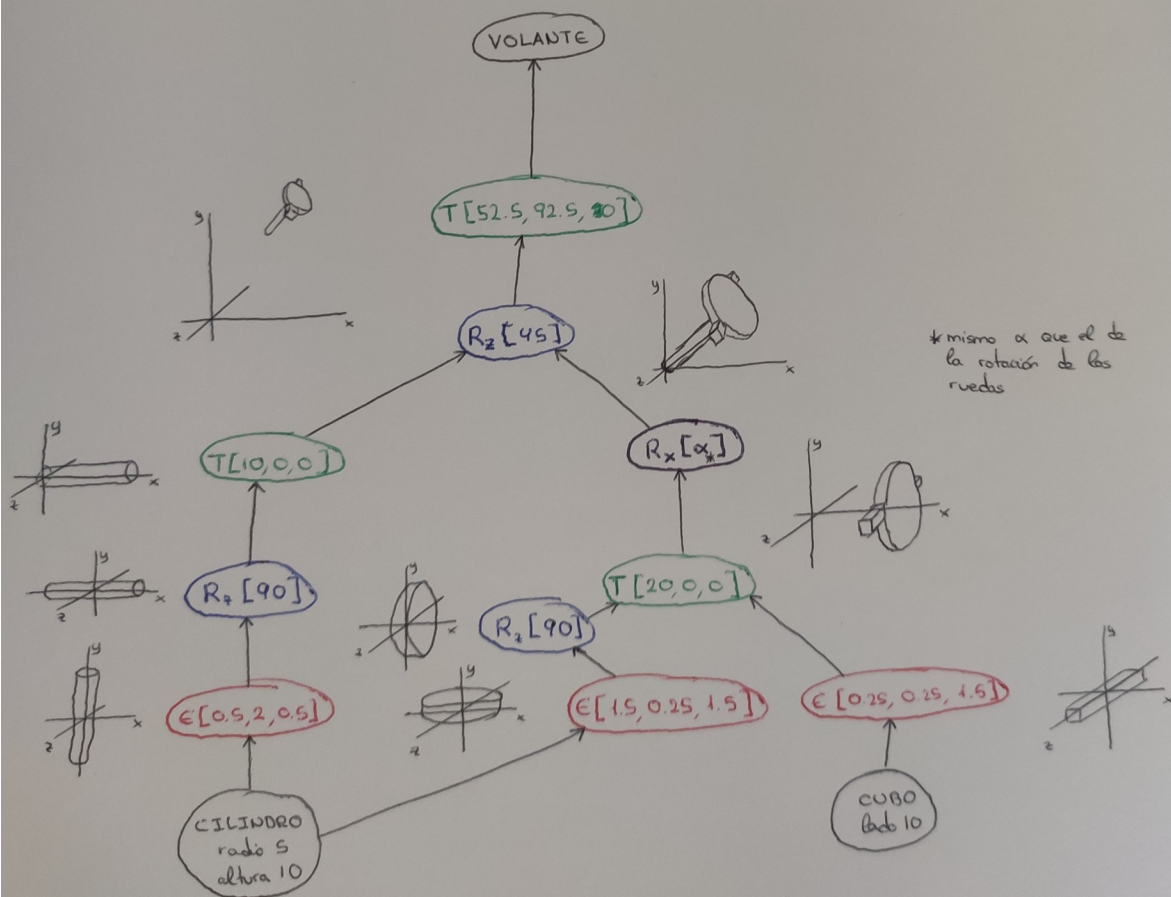 VOLANTE
T[52.5, 92.5, 20]
y
z
x
Rz[45]
y
z
x
*mismo α que el de
la rotación de las
ruedas
T[10,0,0]
y
z
x
Rx[α*]
y
z
x
Rz[90]
y
z
x
T[20,0,0]
y
z
x
Rz[90]
E[0.5,2,0.5]
y
z
x
E[1.5, 0.25, 1.5]
y
z
x
E[0.25, 0.25, 1.5]
y
z
x
CILINDRO
radio 5
altura 10
CUBO
lado 10